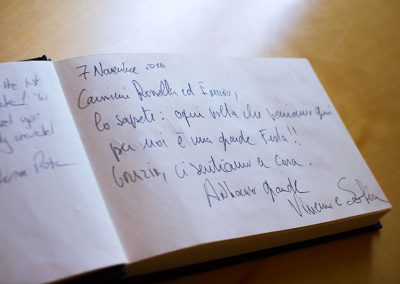 the last
7 Novembre 2010
Carissimi Rosella ed Ennio,
lo sapete: ogni volta che veniamo qui
per noi è una grande Festa!!
Grazie, ci sentiamo a Casa.
Abbraccio grande
Vincenzo e Sofia